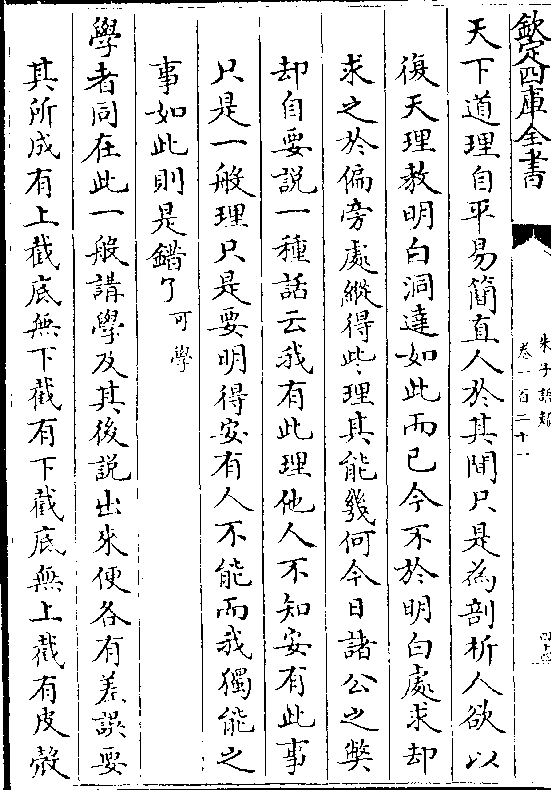 欽定四庫全書
朱子語類
卷一百二十一
天下道理自平易簡直人於其間只是為剖析人欲以
復天理教明白洞達如此而已今不於明白處求却
求之於偏旁處縱得些理其能幾何今日諸公之獘
却自要説一種話云我有此理他人不知安有此事
只是一般理只是要明得安有人不能而我獨能之
事如此則是錯了可學
學者同在此一般講學及其後説出來便各有差誤要
其所成有上截底無下截有下截底無上截有皮殻